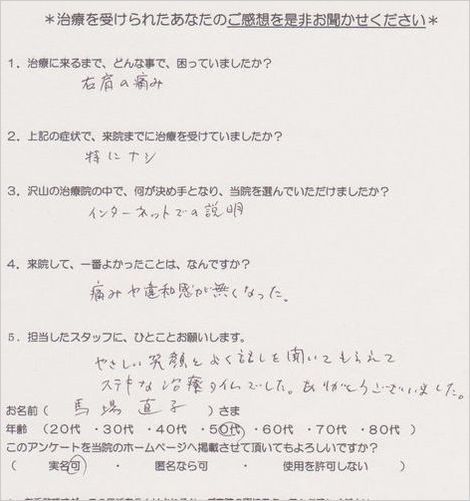 ＊治療を受けられたあなたのご感想を是非お聞かせください＊
1．治療に来るまで、どんな事で、困っていましたか？
右肩の痛み
2．上記の症状で、来院までに治療を受けていましたか？
特にナシ
3．沢山の治療院の中で、何が決め手となり、当院を選んでいただけましたか？
インターネットでの説明
4．来院して、一番よかったことは、なんですか？
痛みや違和感が無くなった。
5．担当したスタッフに、ひとことお願いします。
やさしい笑顔とよく話しを聞いてもらえて
ステキな治療タイムでした。ありがとうございました。
お名前（ 馬場 直子 ）さま
年齢 （20代 ・30代 ・40代 ・50代 ・60代 ・70代 ・80代 ）
このアンケートを当院のホームページへ掲載させて頂いてもよろしいですか？
（ 実名可 ・ 匿名なら可 ・ 使用を許可しない ）